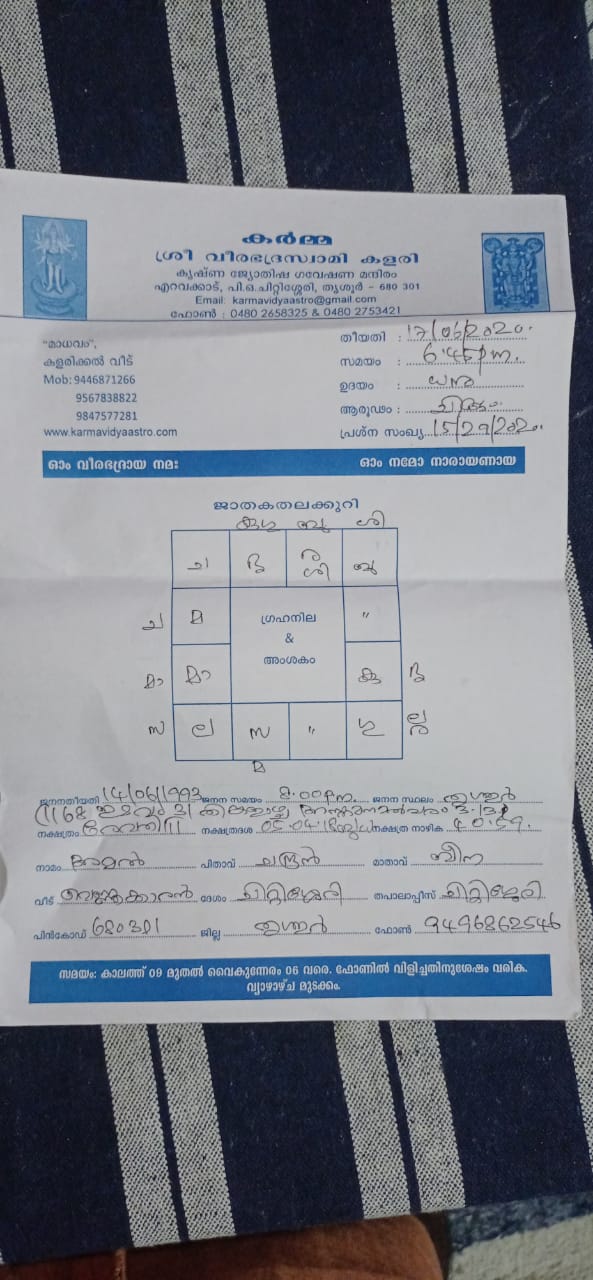 കർമ്മ
ശ്രീ വീരഭദ്രസ്വാമി കളരി
കൃഷ്ണ ജ്യോതിഷ ഗവേഷണ മന്ദിരം
എറവക്കാട്, പി.ഒ.ചിറ്റിശ്ശേരി, തൃശൂർ - 680 301
Email: karmavidyaastro@gmail.com
ഫോൺ : 0480 2658325 & 0480 2753421
"മാധവം",
കളരിക്കൽ വീട്
Mob: 9446871266
9567838822
9847577281
www.karmavidyaastro.com
തീയതി : 17/06/2020.
സമയം : 6.45 pm.
ഉദയം : ധനു
ആരൂഢം : ചിങ്ങം.
പ്രശ്ന സംഖ്യ 15/29/2020.
ഓം വീരഭദ്രായ നമഃ ഓം നമോ നാരായണായ
ജാതകതലക്കുറി
ബു ശി
ച ര ശി ബു
ച മ ഗ്രഹനില & അംശകം "
മാ മാ കു
സ ല സ " ഗു
മ
ജനനതീയതി 14/06/1993 ജനന സമയം 8.00 pm. ജനന സ്ഥലം തൃശ്ശൂർ
നക്ഷത്രം രേവതി നക്ഷത്രദശ നക്ഷത്ര നാഴിക 40.59.
നാമം അമൽ പിതാവ് ചന്ദ്രൻ മാതാവ് ബീന
വീട് ദേശം ചിറ്റിശ്ശേരി തപാലാപ്പീസ് ചിറ്റിശ്ശേരി
പിൻകോഡ് 680301 ജില്ല തൃശ്ശൂർ ഫോൺ 9496862546
സമയം: കാലത്ത് 09 മുതൽ വൈകുന്നേരം 06 വരെ. ഫോണിൽ വിളിച്ചതിനുശേഷം വരിക.
വ്യാഴാഴ്ച മുടക്കം.